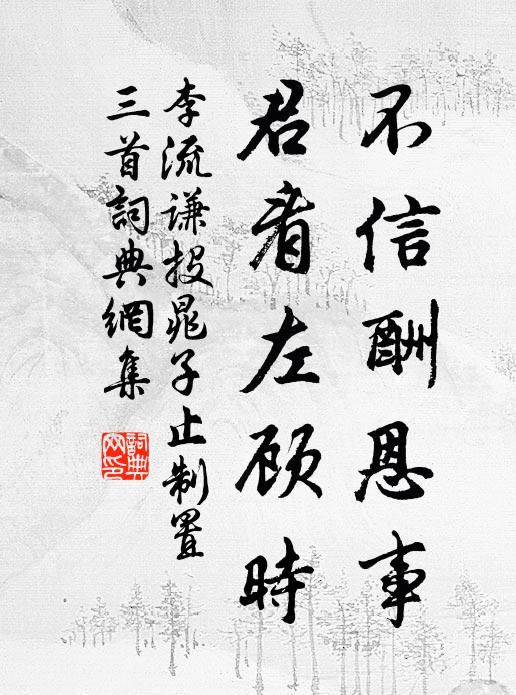 不信酬恩事
君看左顾時
李流谦投晁子止制置
三首詞典網集
詞典網印